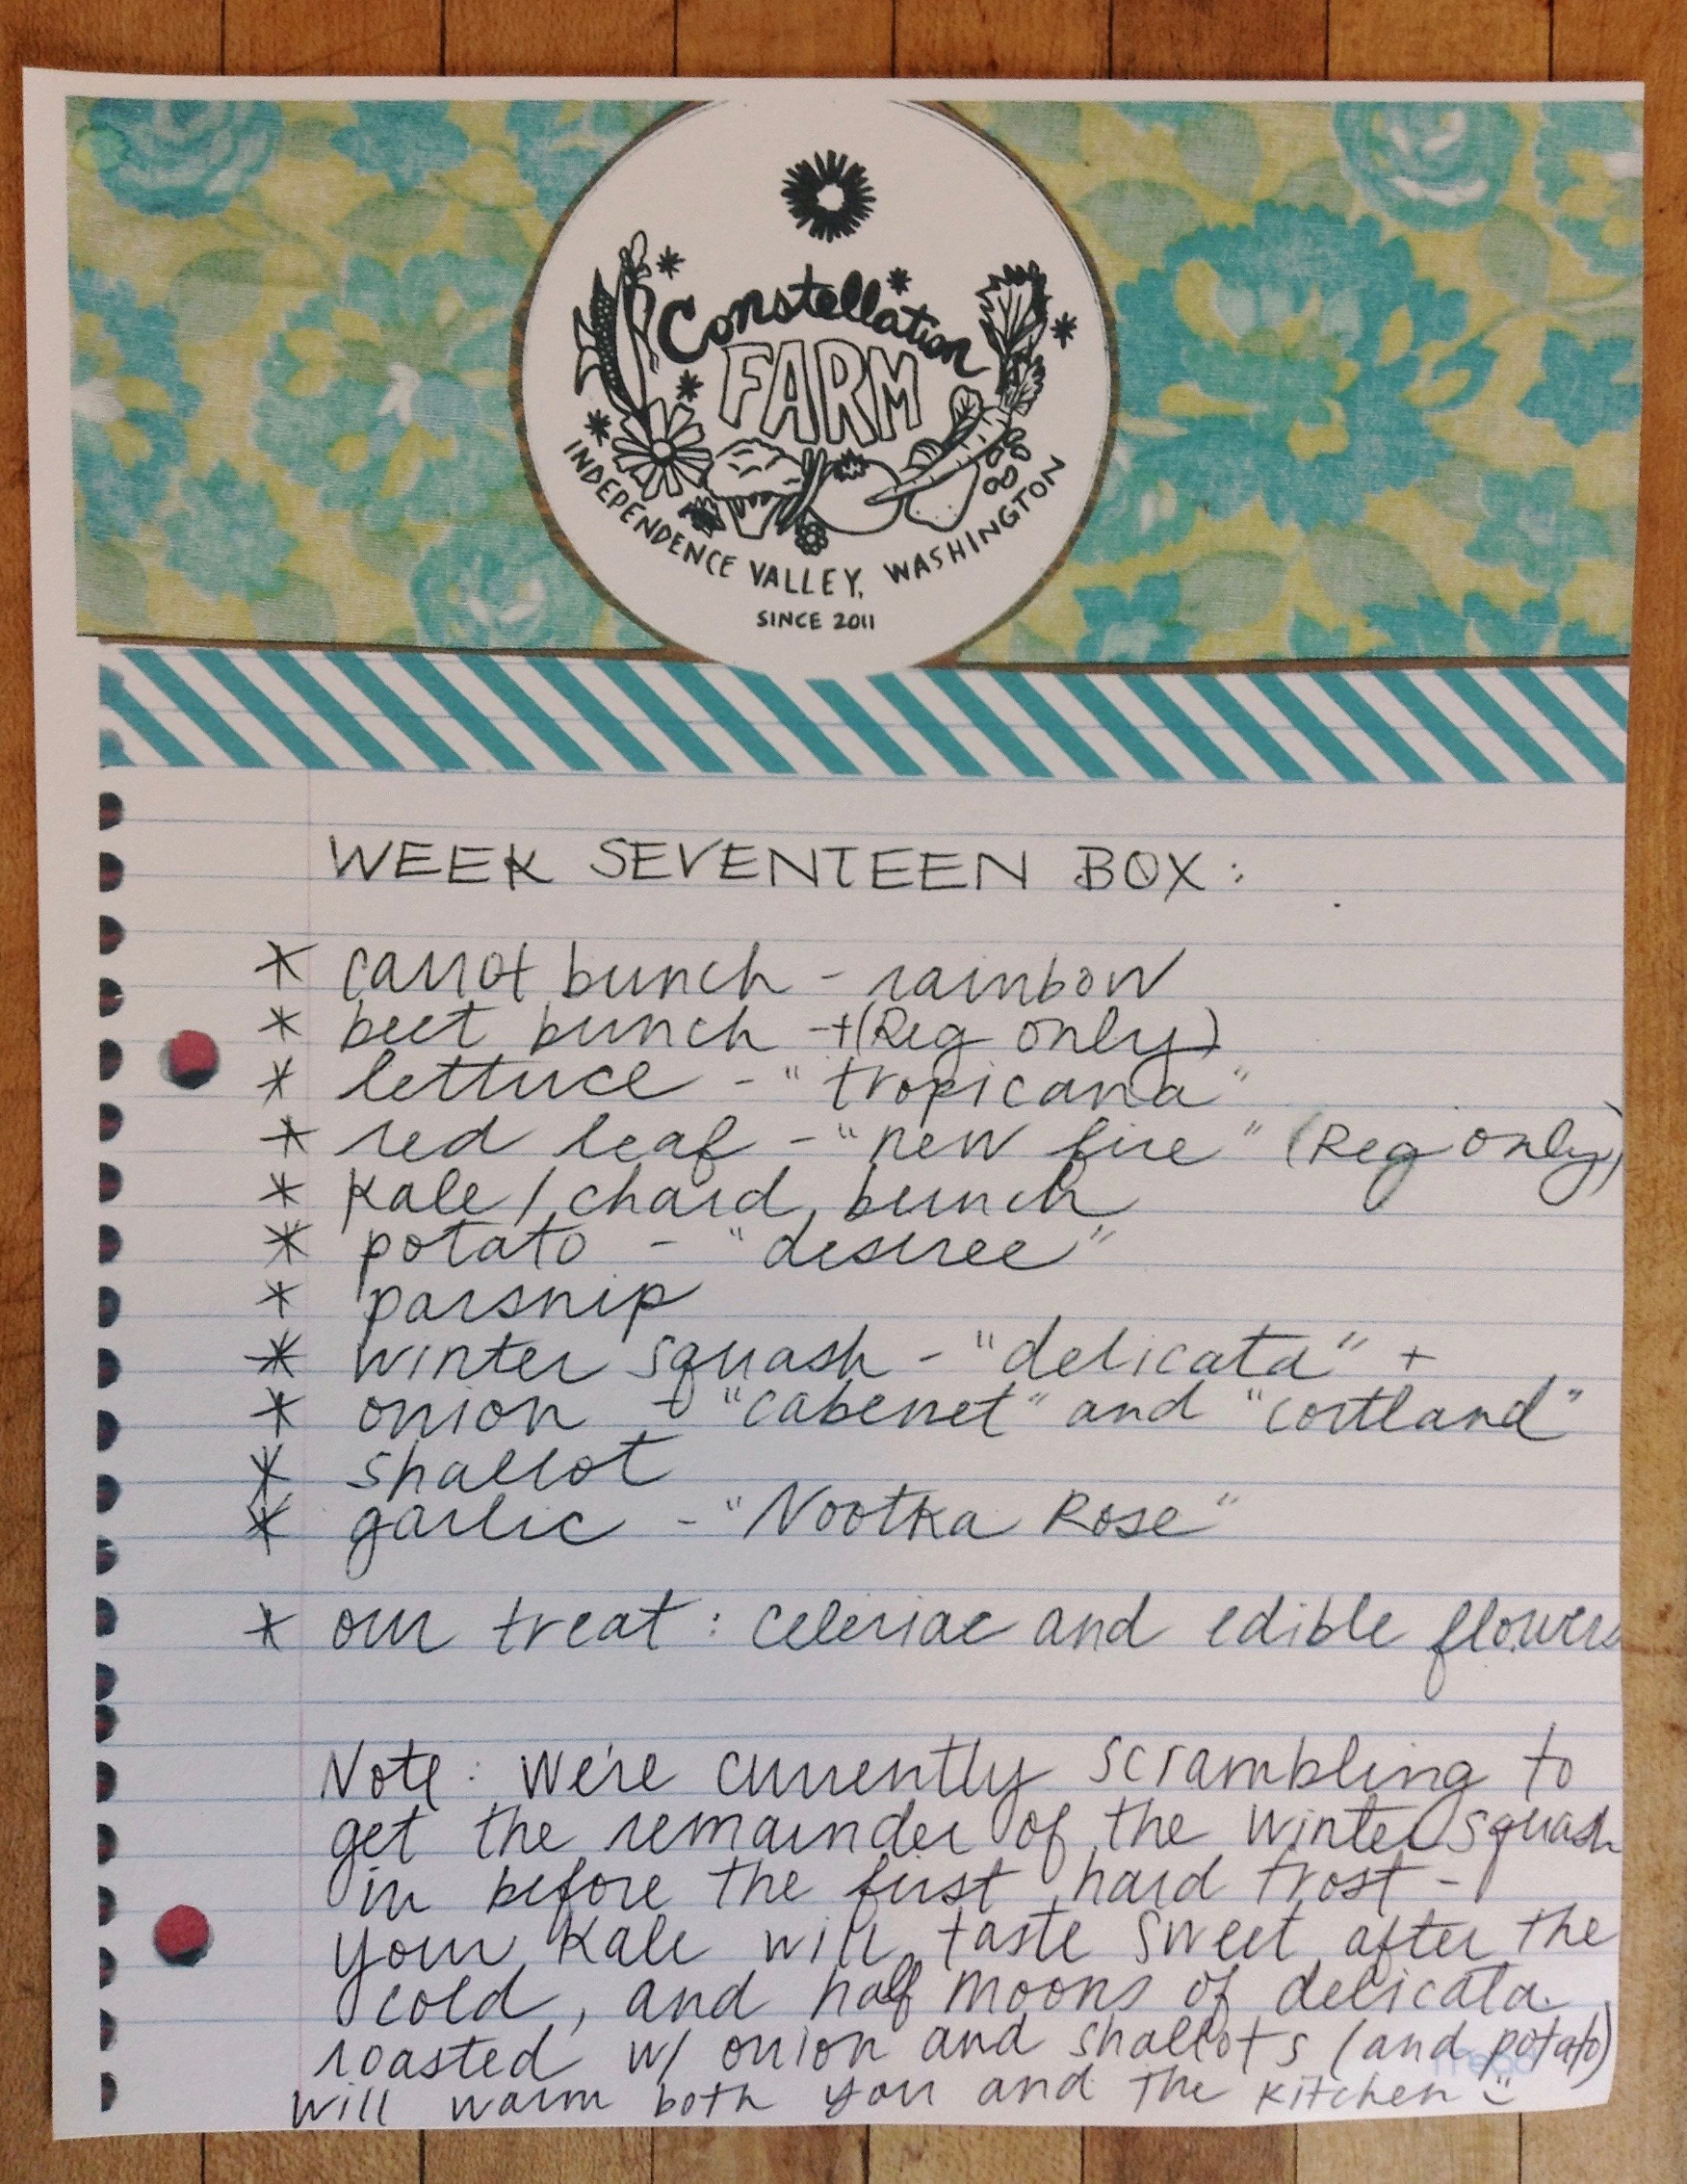 Constellation
FARM
INDEPENDENCE VALLEY, WASHINGTON
SINCE 2011
WEEK SEVENTEEN BOX:
* carrot bunch - rainbow
* beet bunch -+(Reg only)
* lettuce - "tropicana"
* red leaf - "new fire" (Reg only)
* kale / chard bunch
* potato - "desiree"
* parsnip
* winter squash - "delicata" +
* onion - "cabenet" and "cortland"
* shallot
* garlic - "Nootka Rose"
* our treat: celeriac and edible flowers
Note: We're currently scrambling to
get the remainder of the winter squash
in before the first hard frost -
your kale will taste sweet after the
cold, and half moons of delicata
roasted w/ onion and shallots (and potato)
will warm both you and the kitchen :)